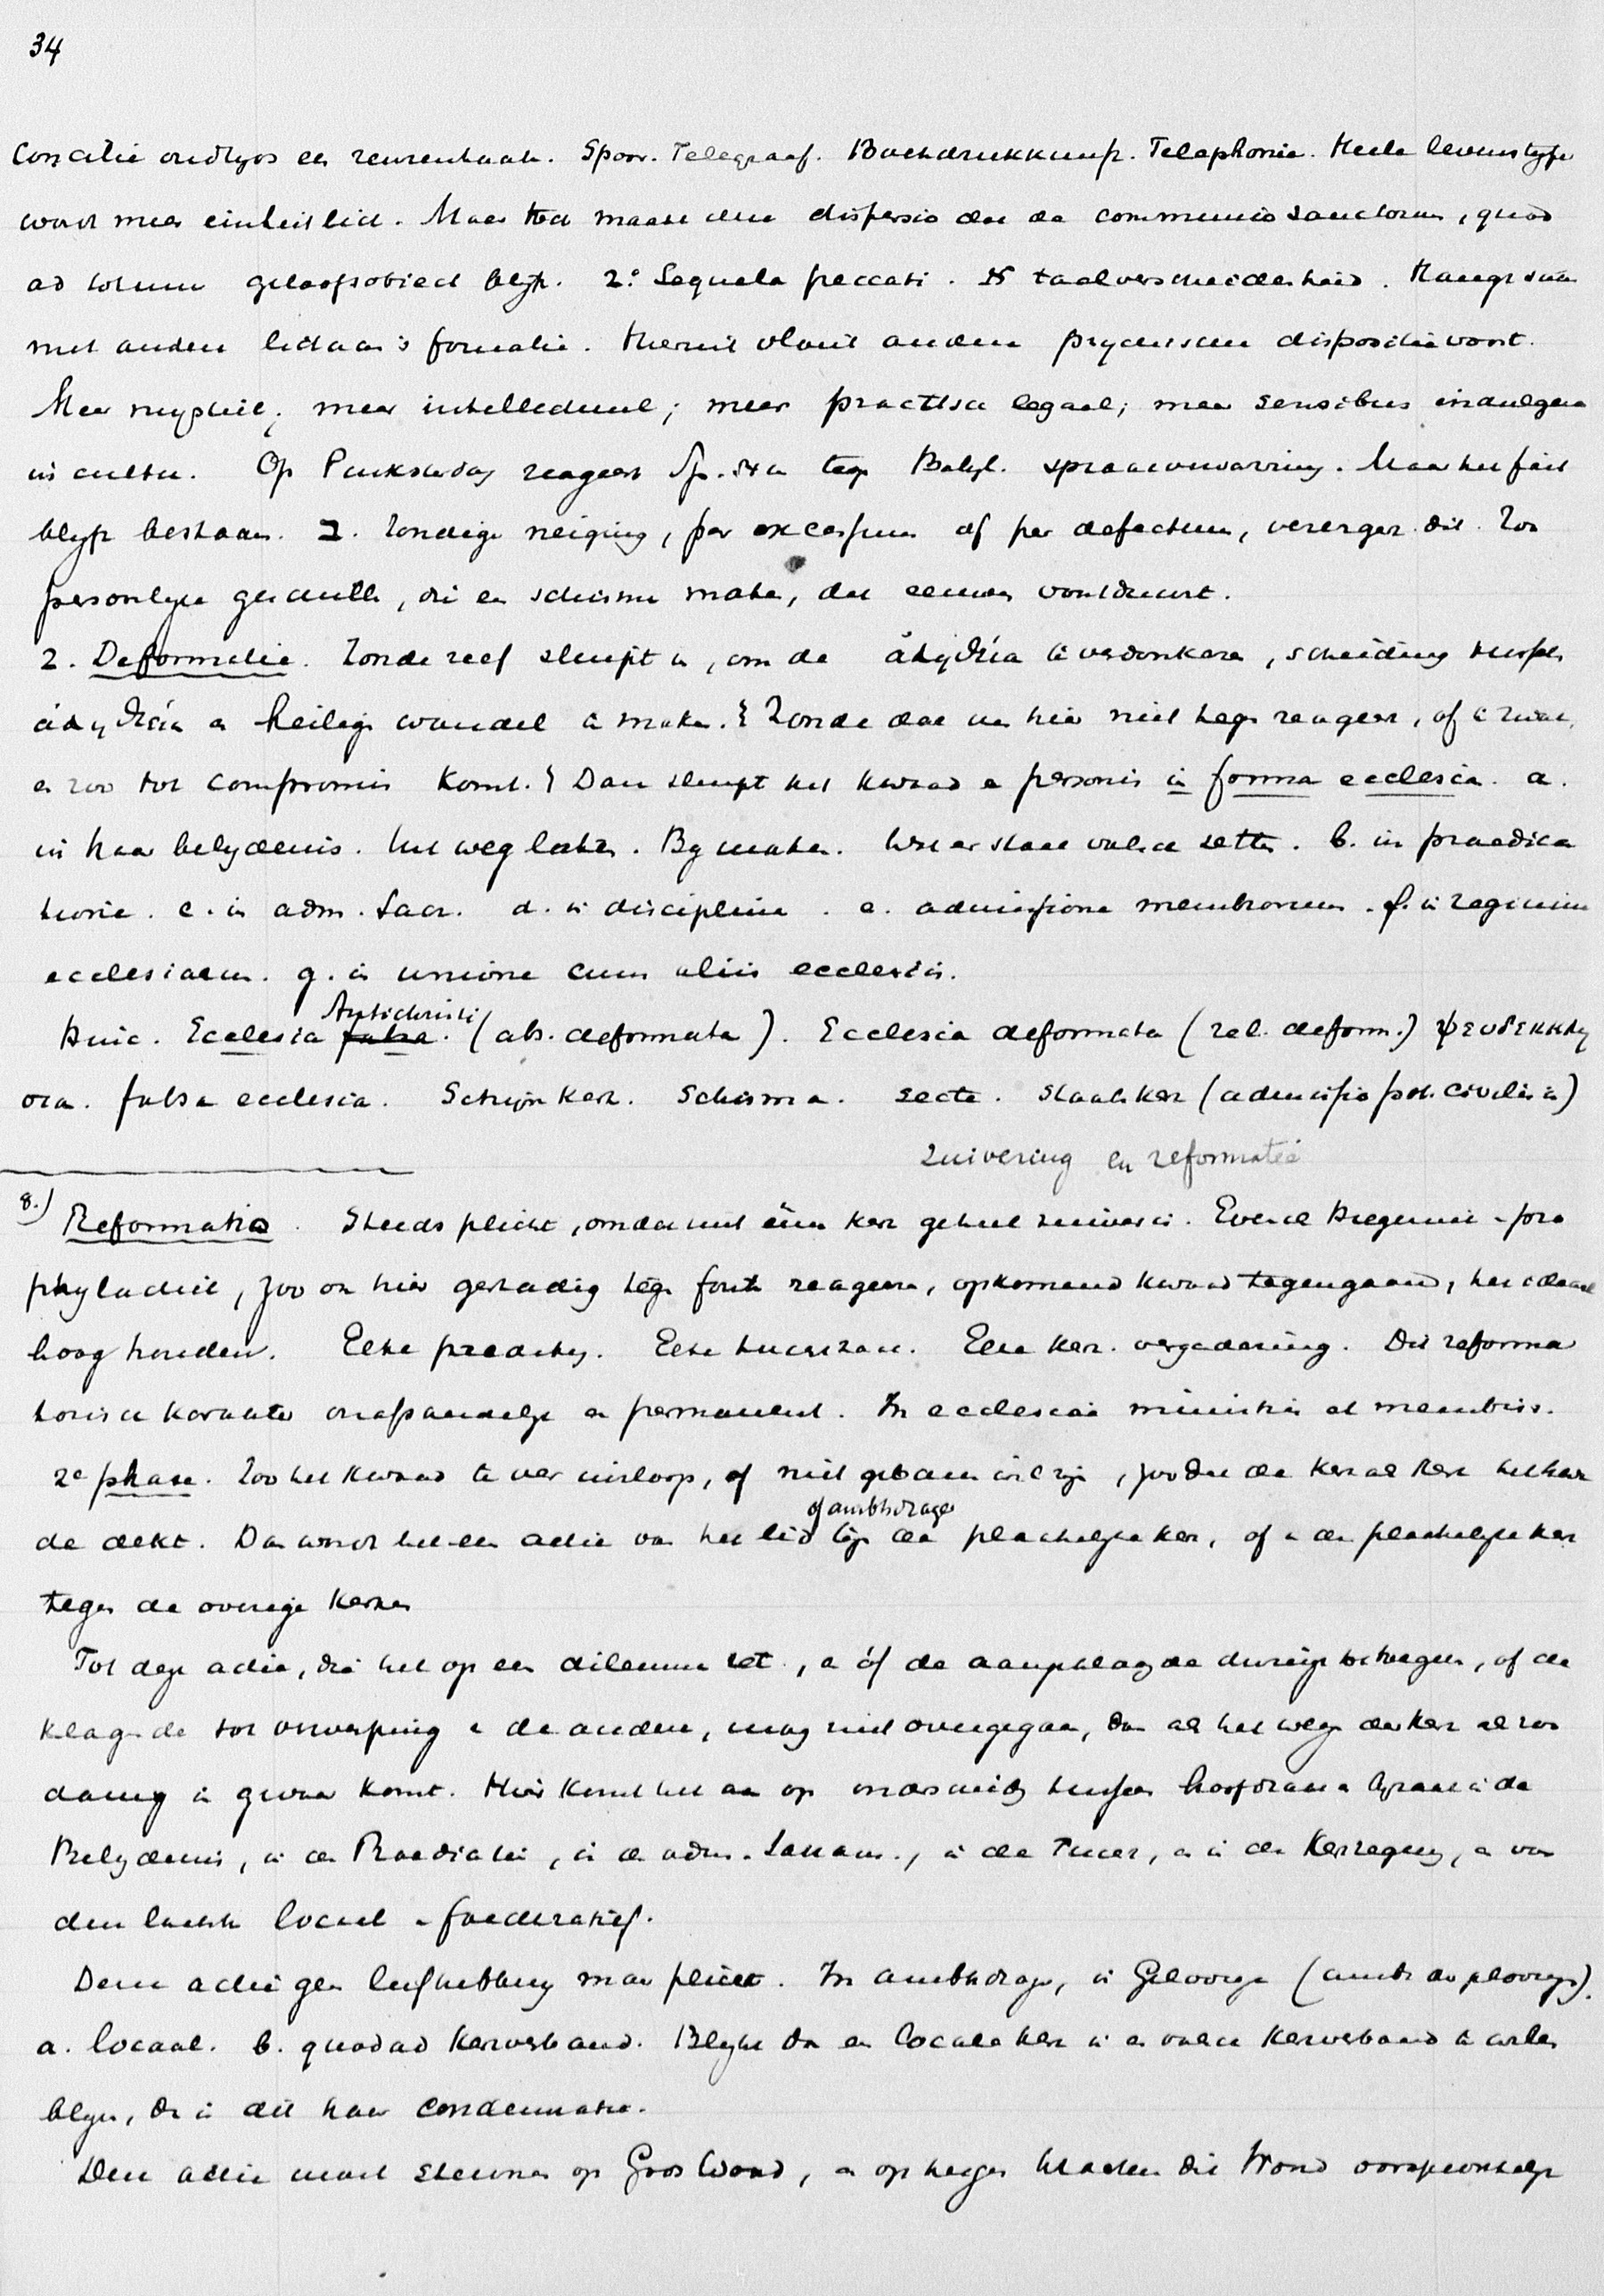 34
Concilie oudtyds en zeurenhaak. Spoor. Telegraaf. Boekdrukkunst. Telephonie. Heele levenstype
word meer einheitlich. Maar toch maakt deze dispersio dat de communio sanctorum, quod
ad totum geloofsobject blyft. 2.° Sequela peccati. Is taalverscheidenheid. Hangt saam
met andere lichaam's formatie. Hieruit vloeit andere psychische dispositie voort.
Meer mystiek; meer intellectueel; meer practisch legaal; meer sensibus indulgere
in cultu. Op Pinksterdag reageert Sp. Stus tegen Babyl. spraakverwarring. Maar het feit
blyft bestaan. 3. Zondige neiging, per excessum of per defectum, verergert dit. Zoo
persoonlyke geschille, die een schisma maken, dat eeuwen voortduurt.
2. Deformatie. Zonde zelf sluipt in, om de ἀληθεία te verdonkeren, scheiding tusschen
ἀληθεία en heilige wandel te maken. } Zonde dat men hier niet tegen reageert, of te zwak,
en zoo tot compromis komt. } Dan sluipt het kwaad e personis in forma ecclesiae. a.
in haar belydenis. Uit weg laten. By maken. Wat er staat valsch zetten. b. in praedica
tione. c. in adm. Sacr. d. in disciplina. e. admissione membrorum. f. in regimine
ecclesiarum. g. in unione cum aliis ecclesiis.
Hinc. Ecclesia falsa. Antichristi (abs. deformata). Ecclesia deformata (rel. deform.) ψευδεκκλη
σια. falsa ecclesia. Schijnkerk. Schisma. Secte. Staatskerk (admissio pot. civilis in)
Zuivering en reformatie
8.) Reformatio. Steeds plicht, omdat niet één kerk geheel zuiver is. Evenals Hygienie - pro
phylactiel, zoo ook hier gestadig tegen fouten reageren, opkomend kwaad tegengaan, het ideaal
hoog houden. Elke predikatie. Elke kerkeraad. Elke ker. vergadering. Dit reforma
torisch karakter onafscheidelyk en permanent. In ecclesiae ministris et membris.
2e phase. Zoo het kwaad te ver insloop, of niet gebannen wil zijn, zoodat de kerk als kerk het kwa
de dekt. Dan wordt het een actie van het lid of ambtsdrager tegen de plaatselyke kerk, of v de plaatselyke kerk
tegen de overige kerken
Tot deze actie, die het op een dilemma zet, en óf de aangeklaagde dwingt te buigen, of de
klagende tot verwerping v de andere, mag niet overgegaan, dan als het wezen der kerk als zoo
danig in gevaar komt. Hier komt het aan op onderscheid tusschen hoofdzaak en bijzaak in de
Belydenis, in de Praedicatie, in de adm. Sacram., in de Tucht, en in de Kerkregering, en van
den laatste locaal - foederatief.
Deze actie geen liefhebbery maar plicht. In ambtsdrager, in Geloovige (ambt der geloovigen).
a. locaal. b. quod ad kerkverband. Blykt dan een locale kerk in een valsch kerkverband te willen
blyven, dan is dit haar condemnatie.
Deze actie moet steunen op Gods Woord, en op hetgeen krachtens dit Woord oorspronkelyk